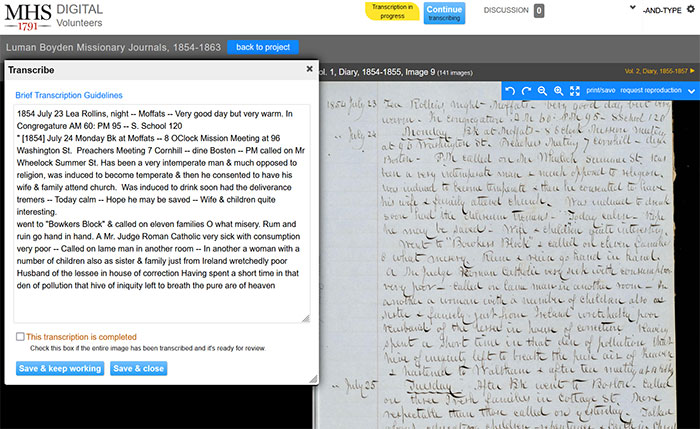 MHS
1791
DIGITAL
Volunteers
Transcription in
progress
Continue
transcribing
DISCUSSION 0
-AND-TYPE
Luman Boyden Missionary Journals, 1854-1863
back to project
Vol. 1, Diary, 1854-1855, Image 9 (141 images)
Vol. 2, Diary, 1855-1857
print/save
request reproduction
Transcribe
Brief Transcription Guidelines
1854 July 23 Lea Rollins, night -- Moffats -- Very good day but very warm. In
Congregature AM 60: PM 95 -- S. School 120
" [1854] July 24 Monday Bk at Moffats -- 8 OClock Mission Meeting at 96
Washington St.  Preachers Meeting 7 Cornhill -- dine Boston -- PM called on Mr
Wheelock Summer St. Has been a very intemperate man & much opposed to
religion, was induced to become temperate & then he consented to have his
wife & family attend church.  Was induced to drink soon had the deliverance
tremers -- Today calm -- Hope he may be saved -- Wife & children quite
interesting.
went to "Bowkers Block" & called on eleven families O what misery. Rum and
ruin go hand in hand. A Mr. Judge Roman Catholic very sick with consumption
very poor -- Called on lame man in another room -- In another a woman with a
number of children also as sister & family just from Ireland wretchedly poor
Husband of the lessee in house of correction Having spent a short time in that
den of pollution that hive of iniquity left to breath the pure are of heaven
This transcription is completed
Check this box if the entire image has been transcribed and it's ready for review.
Save & keep working
Save & close
1854 July 23
Moffats - Very good day but very
warm. In Congregature AM 60 PM 95 - S School 120
July 24 Monday Bk at Moffats - 8 oclock Mission Meeting
at 96 Washington St. Preachers Meeting 7 Cornhill - dine
Boston - PM called on Mr
a very intemperate man & much opposed to religion
was induced to become temperate & then he consented to have
his wife & family attend church. Was induced to drink
soon had the
he may be saved - Wife & children quite interesting
Went to "Bowkers Block" & called on eleven families
O what misery. Rum & ruin go hand in hand.
A Mr Judge Roman Catholic very sick with consumption
very poor - called on lame man in another room - In
another a woman with a number of children also
sister & family just from Ireland wretchedly poor
Husband of the lessee in house of correction Having
spent a short time in that den of pollution that
hive of iniquity left to breath the pure air of heaven
& hastened to Waltham & after tea
July 25 Tuesday. After Bk went to Boston. Called
on three Irish families in Cottage St. More
respectable than those called on yesterday. Talked